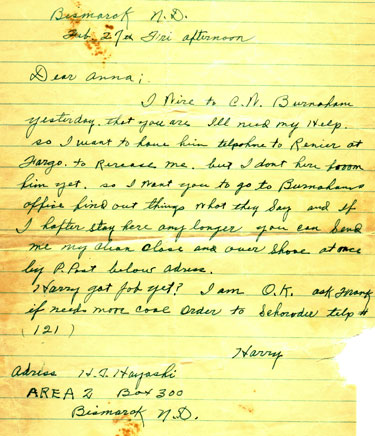 Bismarck N.D.
Feb 27th Fri afternoon
Dear Anna;.
I Wire to C.N. Burnaham
yesterday. that you are Ill need my Help.
so I want to have him telphone to Renier at
Fargo. to Rerease me. but I dont here from
him yet. so I Want you to go to Burnahams
office find out things what they Say and if
I hafter stay here any longer you can Send
me my clean close and over Shoes at once
by P. Post below adress.
Harry got Job yet? I am O.K. ask Frank
if need more coal order to Schoroder telp #
(121)
Harry
Adriss H.J. Hayashi
AREA 2 Box 300
Bismarck N.D.